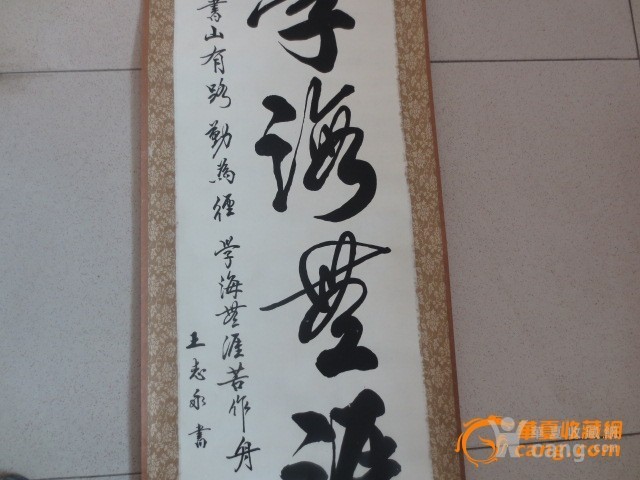 学海無涯
書山有路勤為徑 学海無涯苦作舟
王志永書
華夏收藏網
cang.com